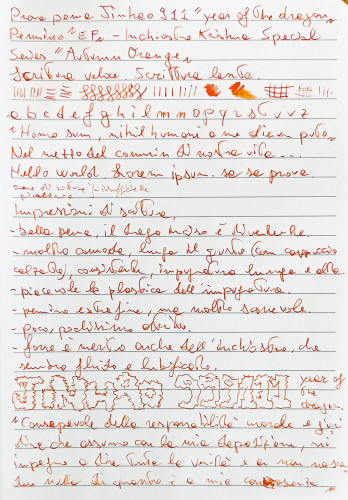 Prova penna Jinhao 911 "year of the dragon"
Pennino "EF" - Inchiostro Krishna Special
Series "Autumn Orange"
Scrittura veloce. Scrittura lenta.
a b c d e f g h i l m n o p q r s t u v z
"Homo sum, nihil humani a me alienum puto"
Nel mezzo del cammin di nostra vita...
Hello world. Lorem ipsum. sa sa prova.
Impressioni di scrittura,
- bella penna, il drago inciso è divertente.
- molto comoda, lunga il giusto (con cappuccio
calzato), consistente, impugnatura lunga e
- piacevole la plastica dell'impugnatura.
- pennino extrafine, ma molto scorrevole.
- poco, pochissimo attrito.
- forse è merito anche dell'inchiostro, che
sembra fluido e lubrificato.
JINHAO 911 year of
the
dragon
"Consapevole della responsabilità morale e giuri
dica che assumo con la mia deposizione, mi
impegno a dire tutta la verità e a non nascon
dere nulla di quanto è a mia conoscenza"